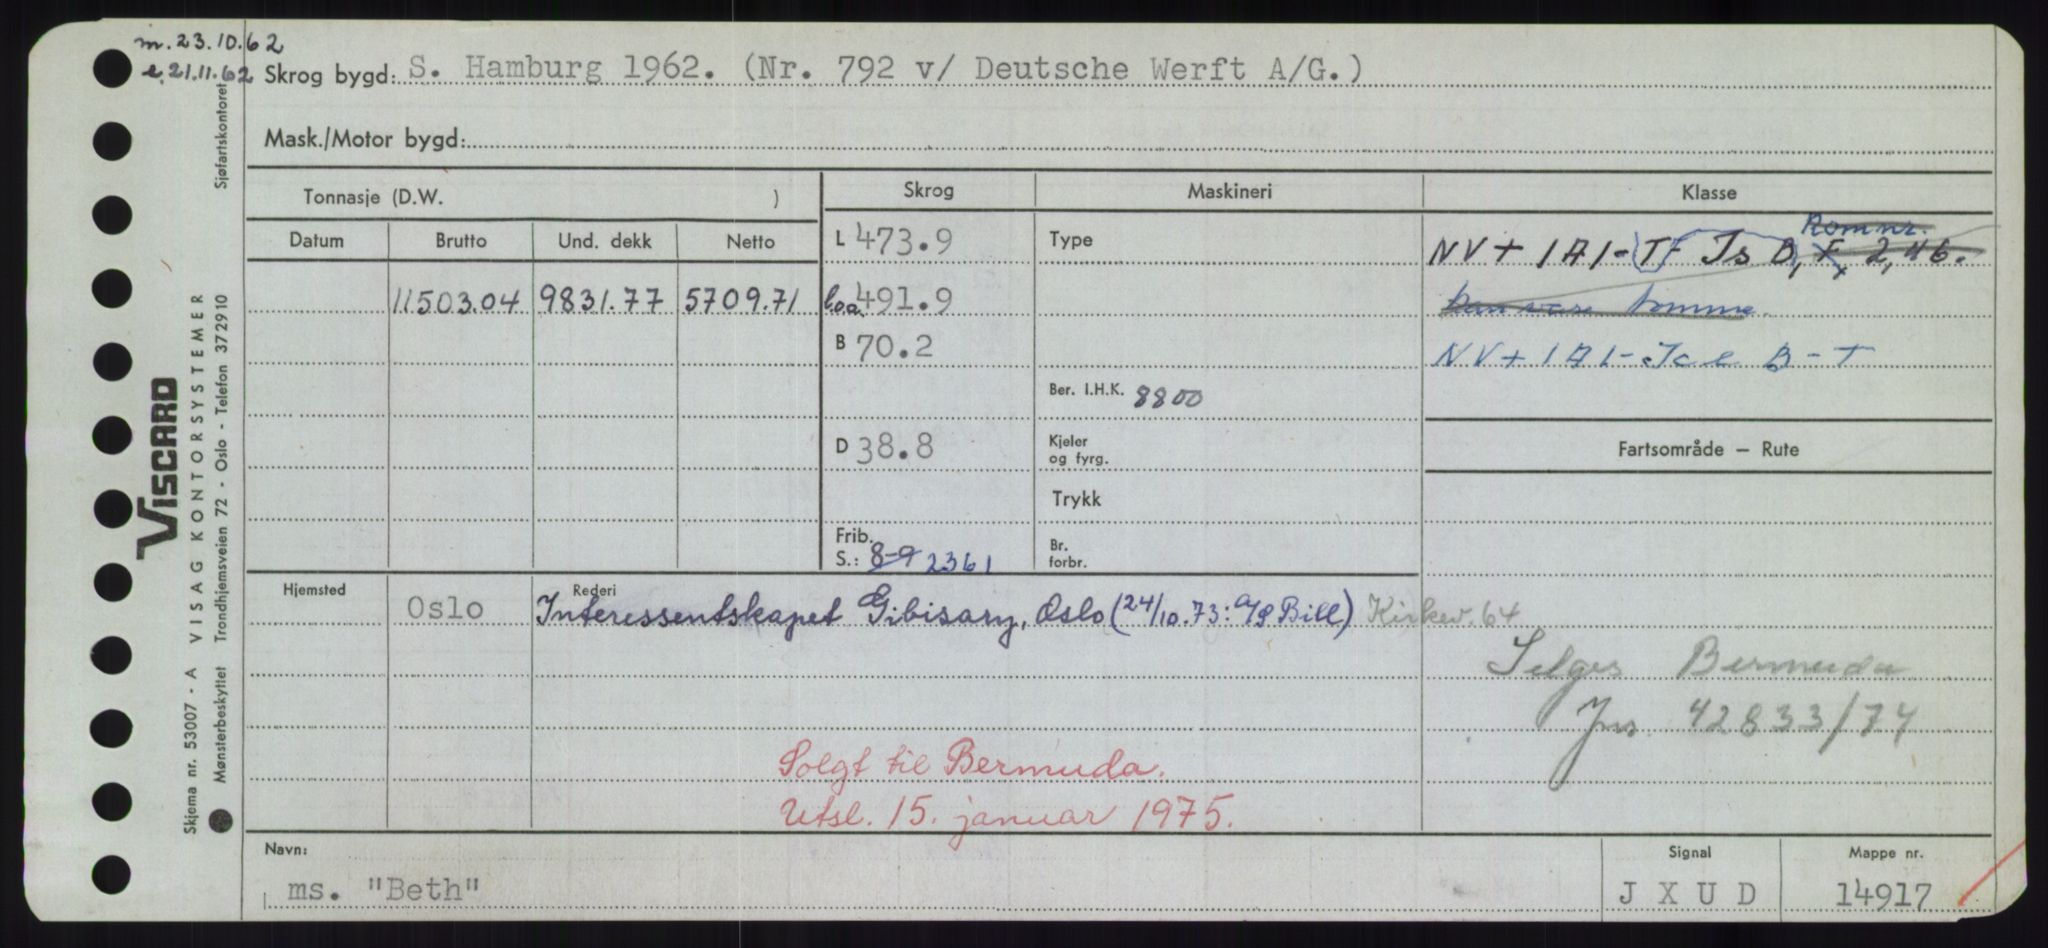 m. 23.10.62
e. 21.11.62 Skrog bygd: S. Hamburg 1962. (Nr. 792 v/ Deutsche Werft A/G.)
Mask./Motor bygd:
Tonnasje (D.W. ) Skrog Maskineri Klasse
Datum Brutto Und. dekk Netto L 473.9 Type NV + 1A1 - TF Is B, F, 2,46. Romnr.
11503.04 9831.77 5709.71 l.o.a. 491.9 kan være tomme.
B 70.2 NV + 1A1 - Ice B - T
Ber. I.H.K. 8800
D 38.8 Kjeler
og fyrg. Fartsområde – Rute
Trykk
Frib.
S.: 8-9 2361 Br.
forbr.
Hjemsted Oslo Rederi Interessentskapet Gibisary, Oslo (24/10.73: A/S Bill) Kirkev. 64
Selges Bermuda
Jnr. 42833/74
Solgt til Bermuda.
Utsl. 15. januar 1975.
Navn: Signal Mappe nr.
ms. "Beth" J X U D 14917
VISCARD
Skjema nr. 53007 - A VISAG KONTORSYSTEMER
Mønsterbeskyttet Trondhjemsveien 72 - Oslo - Telefon 372910 Sjøfartskontoret